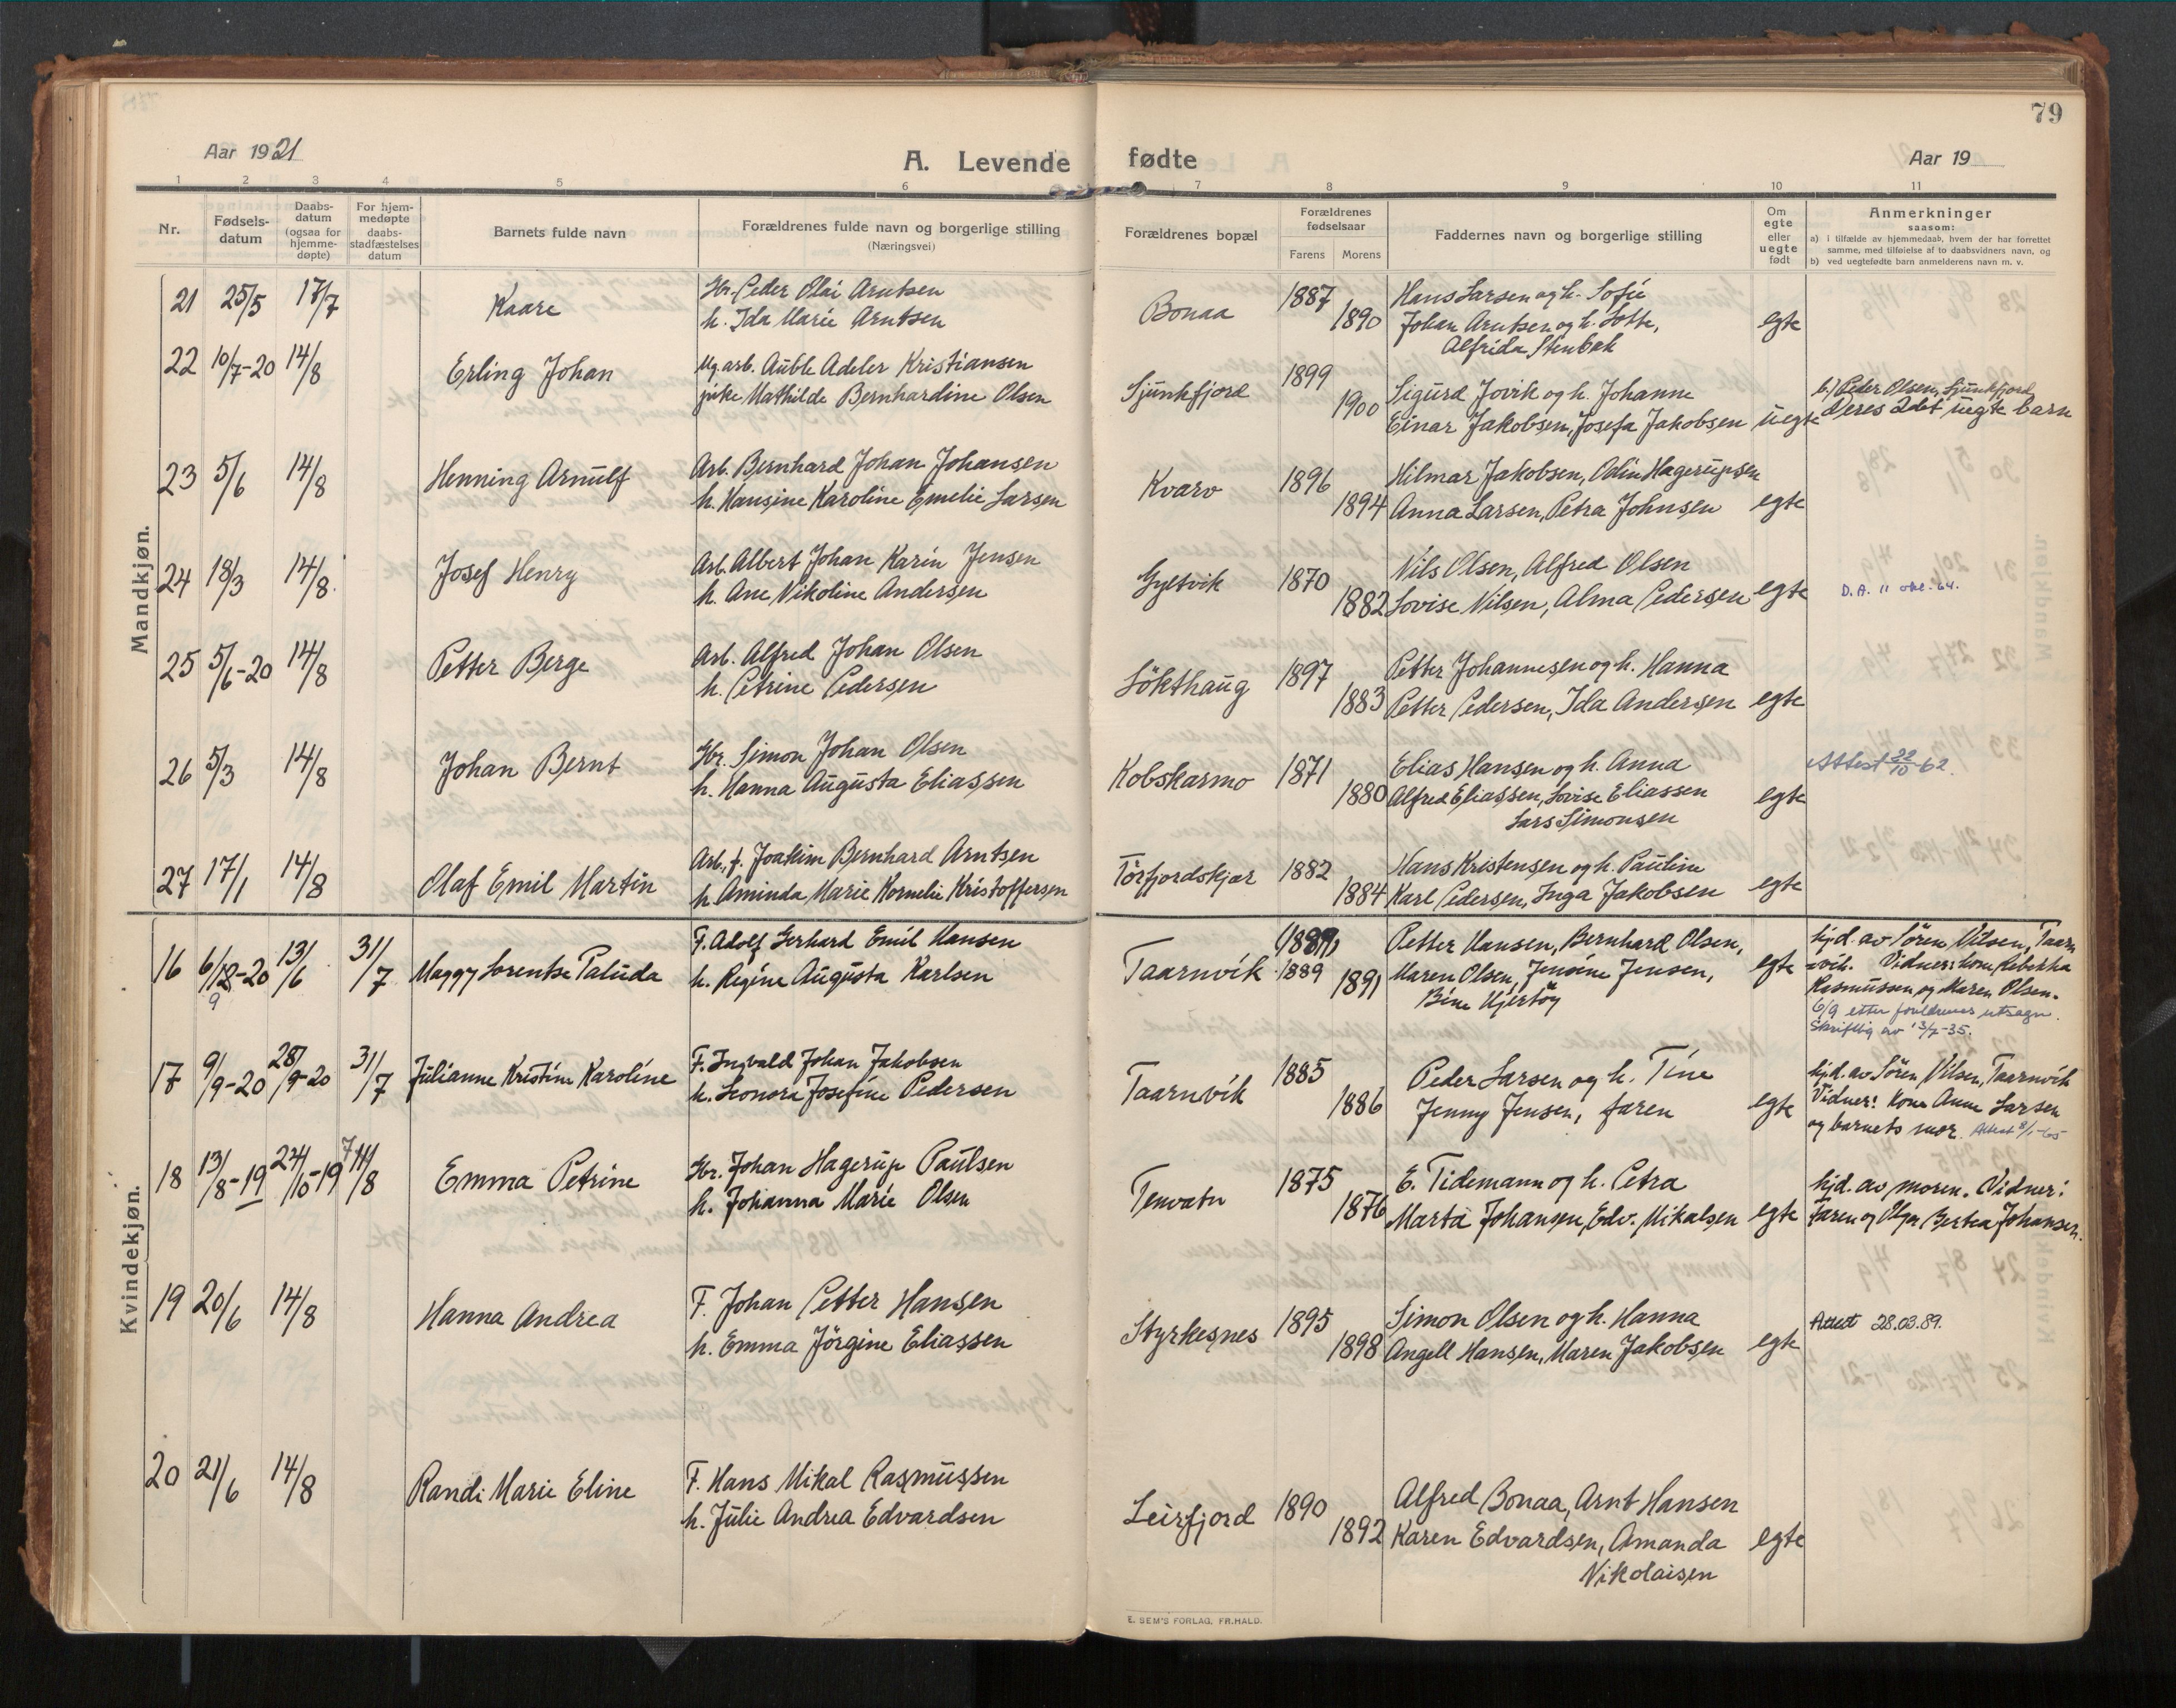 79
Aar 1921
A. Levende fødte
Aar 19
1 2 3 4 5 6 7 8 9 10 11
Nr.
Fødsels-
datum
Daabs-
datum
(ogsaa for
hjemme-
døpte)
For hjem-
medøpte
daabs-
stadfæstelses
datum
Barnets fulde navn
Forældrenes fulde navn og borgerlige stilling
(Næringsvei)
Forældrenes bopæl
Forældrenes
fødselsaar
Farens Morens
Faddernes navn og borgerlige stilling
Om
egte
eller
uegte
født
Anmerkninger
saasom:
a) i tilfælde av hjemmedaab, hvem der har forrettet
samme, med tilføielse af to daabsvidners navn, og
b) ved uegtefødte barn anmelderens navn m. v.
Mandkjøn.
21 25/5 17/7 Kaare
Gbr. Peder Olai Arntsen
h. Ida Marie Arntsen
Bonaa 1887 1890
Hans Larsen og h. Sofie
Johan Arntsen og h. Lotte,
Alfrida Stenbak
egte
22 10/7-20 14/8 Erling Johan
Ug. arb. Adeler Kristiansen
pike Mathilde Bernhardine Olsen
Sjunkfjord 1899 1900
Sigurd Jovik og h. Johanne
Einar Jakobsen, Josefa Jakobsen
uegte
b) Peder Olsen, Sjunkfjord
Deres 2det uegte barn
23 5/6 14/8 Henning Arnulf
Arb. Bernhard Johan Johansen
h. Hansine Karoline Emelie Larsen
Kvarv 1896 1894
Hilmar Jakobsen, Odin Hagerupsen
Anna Larsen, Petra Johnsen
egte
24 18/3 14/8 Josef Henry
Arb. Albert Johan Karin Jensen
h. Ane Nikoline Andersen
Gyltvik 1870 1882
Nils Olsen, Alfred Olsen
Lovise Nilsen, Alma Pedersen
egte
D.A. 11 okt. 64.
25 5/6-20 14/8 Petter Berge
Arb. Alfred Johan Olsen
h. Petrine Pedersen
Løkthaug 1897 1883
Petter Johannesen og h. Hanna
Petter Pedersen, Ida Andersen
egte
26 5/3 14/8 Johan Bernt
Gbr. Simon Johan Olsen
h. Hanna Augusta Eliassen
Kobskarmo 1871 1880
Elias Hansen og h. Anna
Alfred Eliassen, Lovise Eliassen
Lars Simonsen
egte
Attest 22/10-62.
27 17/1 14/8 Olaf Emil Martin
Arb., f. Joakim Bernhard Arntsen
h. Aminda Marie Kornelie Kristoffersen
Törfjordskjar 1882 1884
Hans Kristensen og h. Pauline
Karl Pedersen, Inga Jakobsen
egte
Kvindekjøn.
16 6/12-20 13/6 31/7 Maggy Lorentse Paluda
9
F. Adolf Gerhard Emil Hansen
h. Regine Augusta Karlsen
Taarnvik 1889 1891
Petter Hansen, Bernhard Olsen,
Maren Olsen, Jensine Jensen,
Bine Kjertöy
egte
hjd. av Sören Nilsen, Taarn
vik. Vidner: kone Rebekka
Rasmussen og Maren Olsen.
6/9 etter foreldrenes utsagn.
Skriftlig av 13/7-35.
17 9/9-20 28/9-20 31/7 Julianne Kristine Karoline
F. Ingvald Johan Jakobsen
h. Leonora Josefine Pedersen
Taarnvik 1885 1886
Peder Larsen og h. Tine
Jenny Jensen, faren
egte
hjd. av Sören Nilsen, Taarnvik
Vidner: Kone Anne Larsen
og barnets mor. Attest 8/1-65
18 13/8-19 24/10-19 14/8 Emma Petrine
Gbr. Johan Hagerup Paulsen
h. Johanna Marie Olsen
Tenvatn 1875 1876
E. Tidemann og h. Petra
Marta Johansen, Edv. Mikalsen
egte
hjd. av moren. Vidner:
Faren og Olga Bertea Johansen.
19 20/6 14/8 Hanna Andrea
F. Johan Petter Hansen
h. Emma Jörgine Eliassen
Styrkesnes 1895 1898
Simon Olsen og h. Hanna
Angell Hansen, Maren Jakobsen
egte
Attest 28.03.89.
20 21/6 14/8 Randi Marie Eline
F. Hans Mikal Rasmussen
h. Julie Andrea Edvardsen
Leirfjord 1890 1892
Alfred Bonaa, Arnt Hansen
Karen Edvardsen, Amanda
Nikolaisen
egte
E. SEM'S FORLAG, FR.HALD.